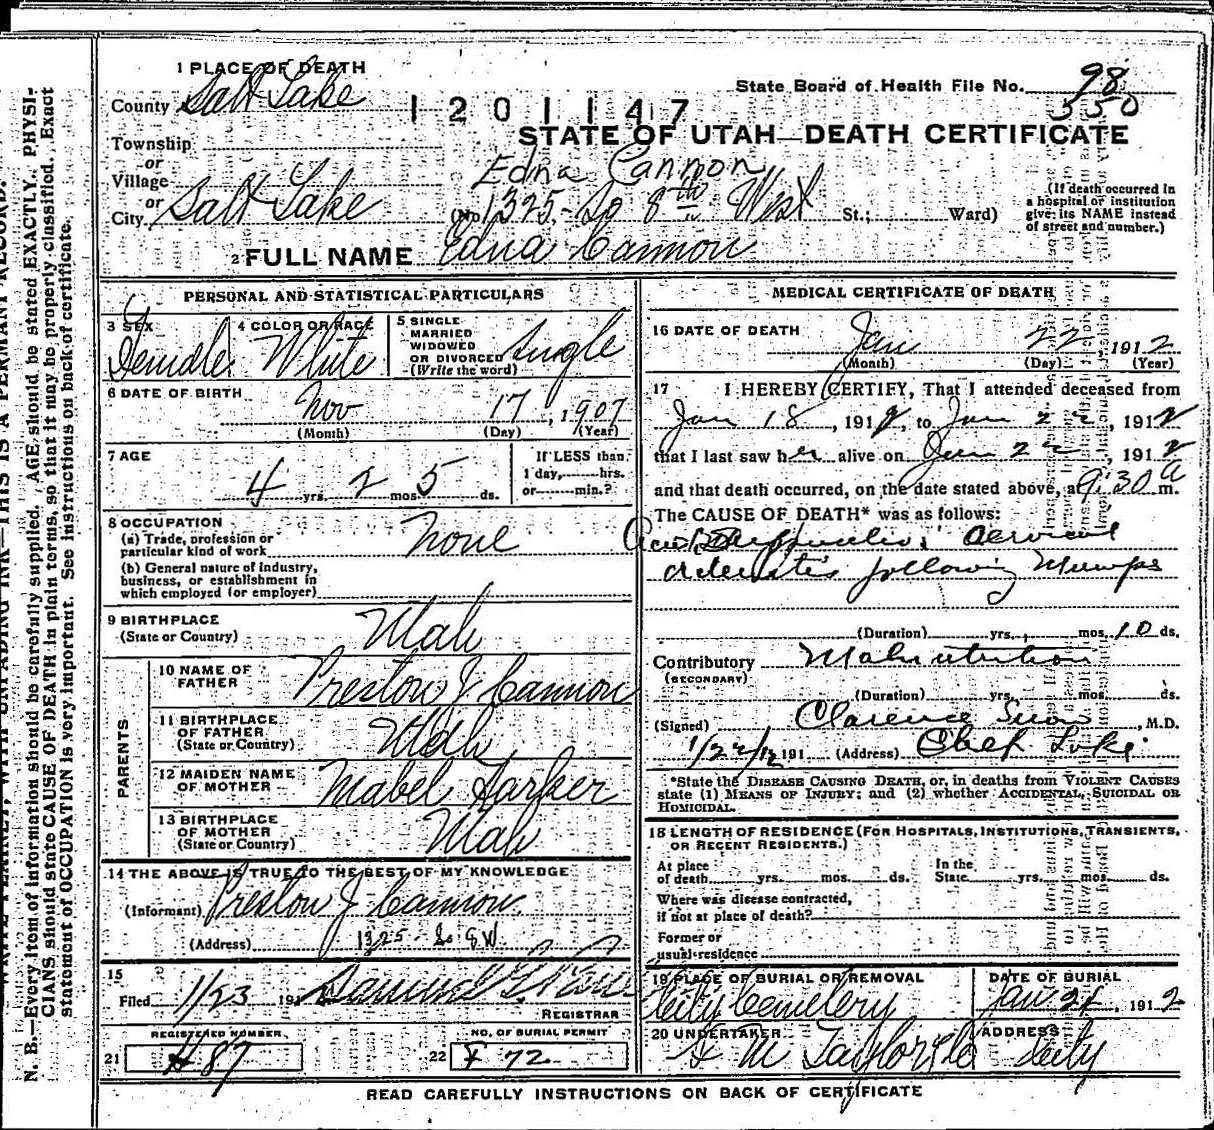 1 PLACE OF DEATH
County Salt Lake
State Board of Health File No. 98
550
1 2 0 1 1 4 7
STATE OF UTAH—DEATH CERTIFICATE
Township
or
Village
or
City Salt Lake
Edna Cannon
(No 1325 - So 8th West St.; Ward)
(If death occurred in
a hospital or institution
give its NAME instead
of street and number.)
2 FULL NAME Edna Cannon
PERSONAL AND STATISTICAL PARTICULARS
3 SEX Female
4 COLOR OR RACE White
5 SINGLE
MARRIED
WIDOWED
OR DIVORCED Single
(Write the word)
6 DATE OF BIRTH
Nov 17, 1907
(Month) (Day) (Year)
7 AGE
4 yrs. 2 mos 5 ds.
If LESS than
1 day, hrs.
or min.?
8 OCCUPATION
(a) Trade, profession or
particular kind of work None
(b) General nature of industry,
business, or establishment in
which employed (or employer)
9 BIRTHPLACE
(State or Country) Utah
PARENTS
10 NAME OF
FATHER Preston J Cannon
11 BIRTHPLACE
OF FATHER
(State or Country) Utah
12 MAIDEN NAME
OF MOTHER Mabel Harker
13 BIRTHPLACE
OF MOTHER
(State or Country) Utah
14 THE ABOVE IS TRUE TO THE BEST OF MY KNOWLEDGE
(Informant) Preston J Cannon
(Address) 1325 - So 8 W.
15
Filed 1/23 191
REGISTRAR
REGISTERED NUMBER
21 87
NO. OF BURIAL PERMIT
22 72
MEDICAL CERTIFICATE OF DEATH
16 DATE OF DEATH
Jan 22 1912
(Month) (Day) (Year)
17 I HEREBY CERTIFY, That I attended deceased from
Jan 18, 1912, to Jan 22, 1912
that I last saw her alive on Jan 22, 1912
and that death occurred, on the date stated above, at 9:30 a m.
The CAUSE OF DEATH* was as follows:
cervical
adenitis following Mumps
(Duration) yrs. mos. 10 ds.
Contributory Malnutrition
(SECONDARY)
(Duration) yrs. mos. ds.
(Signed) Clarence Snow, M.D.
1/22/12 191 (Address)
*State the DISEASE CAUSING DEATH, or, in deaths from VIOLENT CAUSES
state (1) MEANS OF INJURY; and (2) whether ACCIDENTAL, SUICIDAL OR
HOMICIDAL.
18 LENGTH OF RESIDENCE (FOR HOSPITALS, INSTITUTIONS, TRANSIENTS,
OR RECENT RESIDENTS.)
At place
of death yrs. mos. ds.
In the
State yrs. mos. ds.
Where was disease contracted,
if not at place of death?
Former or
usual residence
19 PLACE OF BURIAL OR REMOVAL
City Cemetery
DATE OF BURIAL
Jan 24, 1912
20 UNDERTAKER
ADDRESS
City
READ CAREFULLY INSTRUCTIONS ON BACK OF CERTIFICATE
N. B.—Every item of information should be carefully supplied. AGE should be stated EXACTLY. PHYSI-
CIANS should state CAUSE OF DEATH in plain terms, so that it may be properly classified. Exact
statement of OCCUPATION is very important. See instructions on back of certificate.